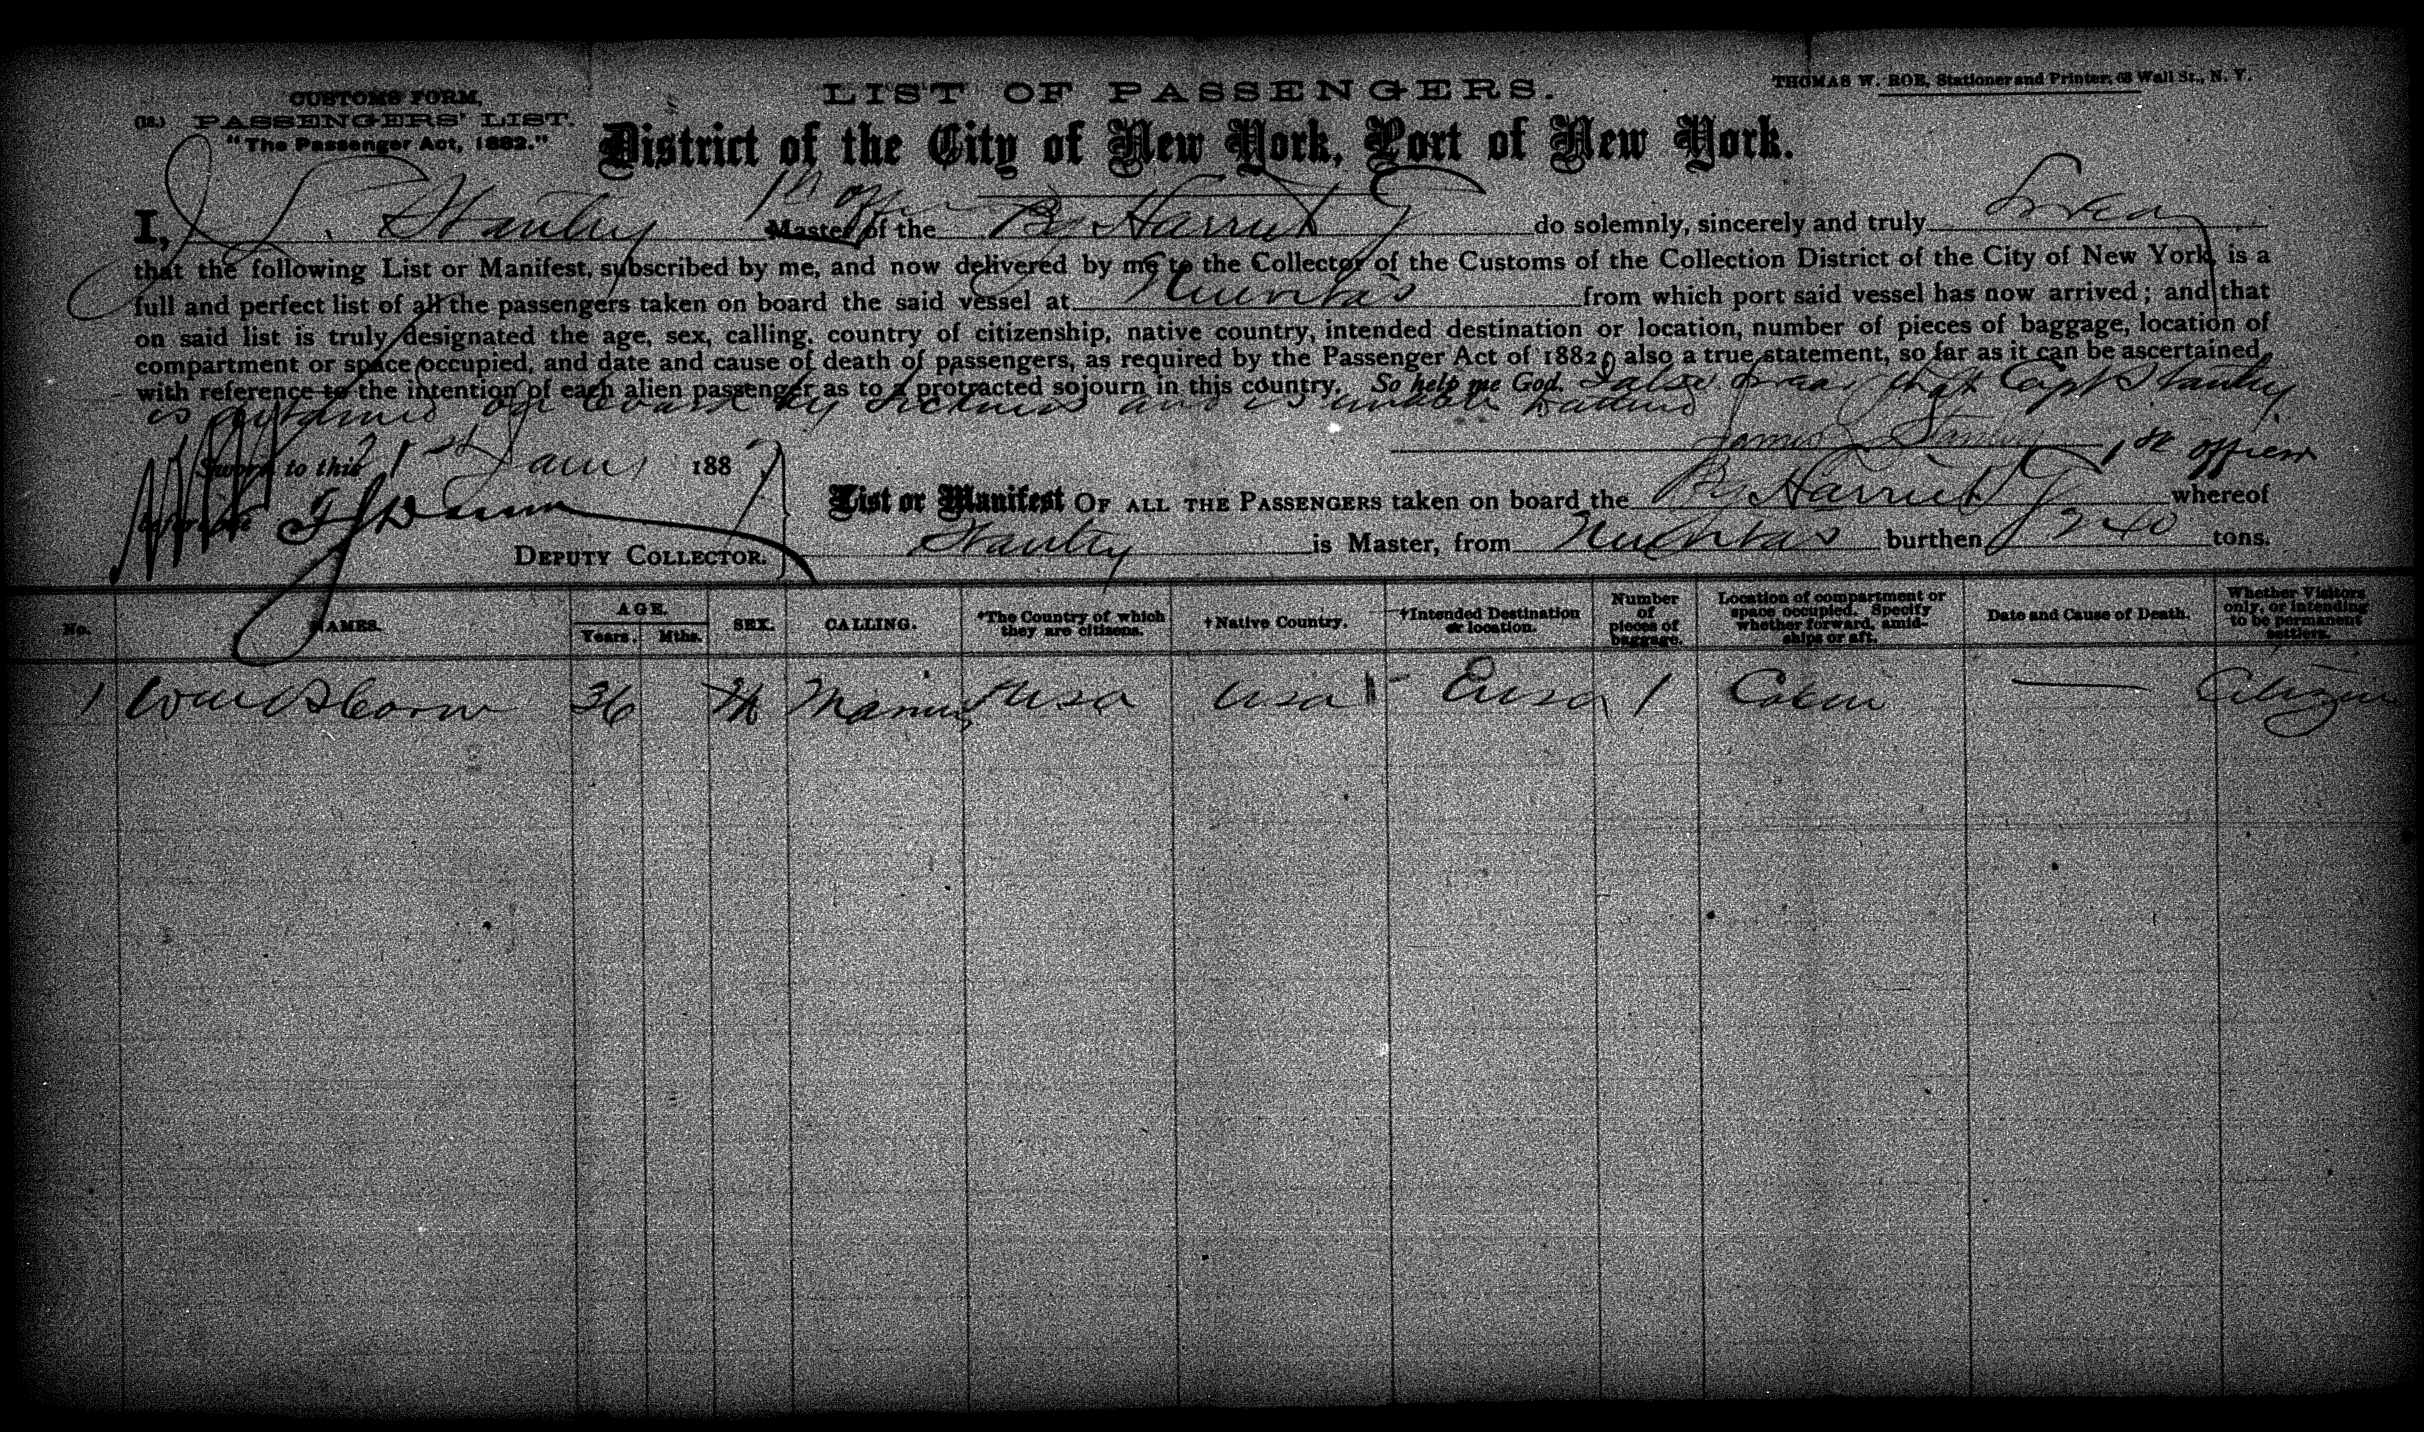 LIST OF PASSENGERS.
THOMAS W. ROE, Stationer and Printer, 68 Wall St., N. Y.
CUSTOMS FORM,
(18.) PASSENGERS' LIST.
"The Passenger Act, 1882."
District of the City of New York, Port of New York.
I, J. L. Stanley 1st off Master of the Bg Harriet G do solemnly, sincerely and truly Swear
that the following List or Manifest, subscribed by me, and now delivered by me to the Collector of the Customs of the Collection District of the City of New York, is a
full and perfect list of all the passengers taken on board the said vessel at Nuevitas from which port said vessel has now arrived; and that
on said list is truly designated the age, sex, calling, country of citizenship, native country, intended destination or location, number of pieces of baggage, location of
compartment or space occupied, and date and cause of death of passengers, as required by the Passenger Act of 1882; also a true statement, so far as it can be ascertained,
with reference to the intention of each alien passenger as to a protracted sojourn in this country. So help me God. I also swear that Capt Stanley
is on board by sickness and is unable
James L Stanley 1st officer
Sworn to this 21st Jany 1887
List or Manifest OF ALL THE PASSENGERS taken on board the Bg Harriet G whereof
Stanley is Master, from Nuevitas burthen 240 tons.
DEPUTY COLLECTOR.
No. NAMES. AGE. Years. Mths. SEX. CALLING. *The Country of which they are citizens. †Native Country. †Intended Destination or location. Number of pieces of baggage. Location of compartment or space occupied. Specify whether forward, amidships or aft. Date and Cause of Death. Whether Visitors only, or intending to be permanent settlers.
1 Wm Osborn 36 M Marin usa usa usa 1 Cabin — Citizen